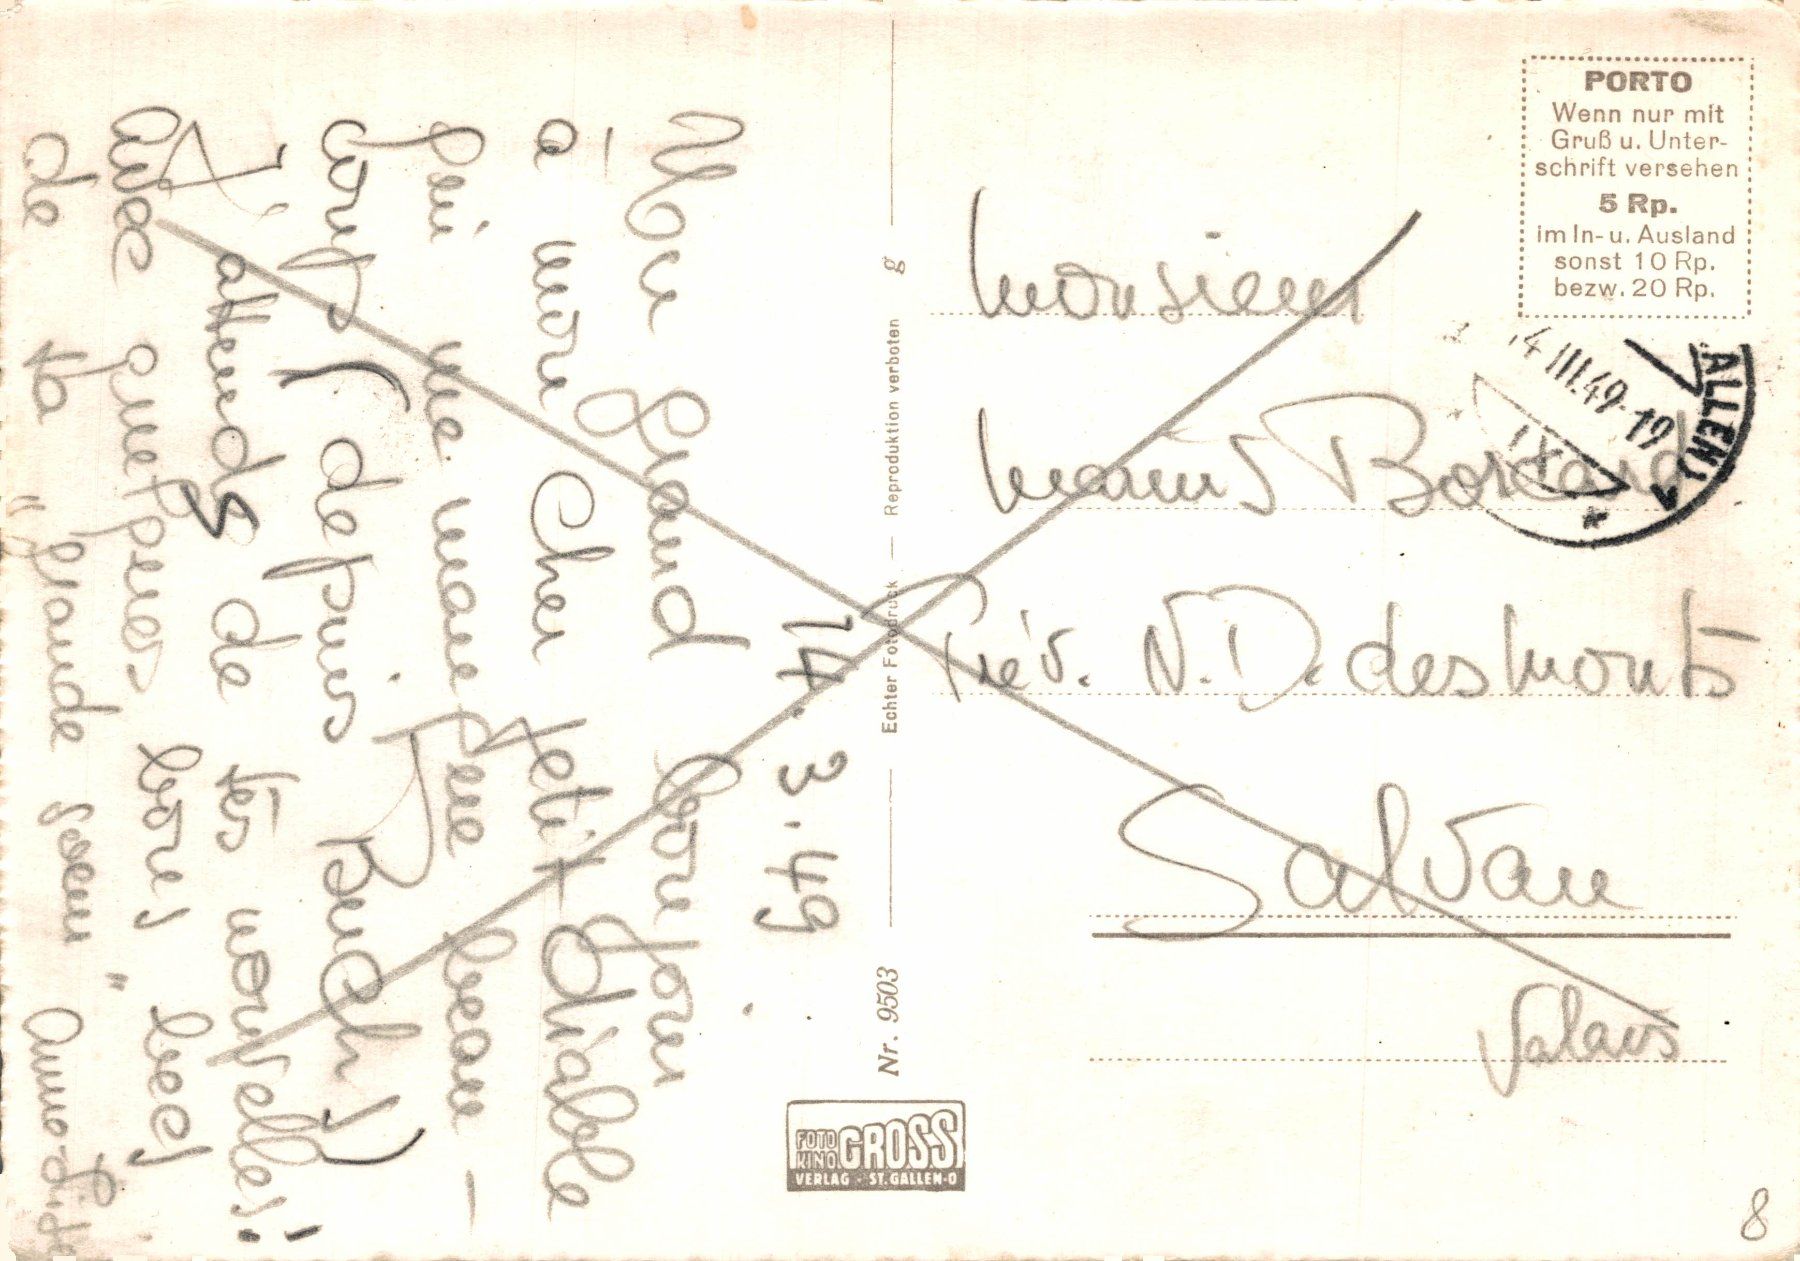 14.3.49
Un grand bonjour
à mon cher petit diable
qui me manque beau-
coup (depuis Buch!)
J'attends de tes nouvelles!
avec quelques bons becs
de ta "grande soeur"
Echter Fotodruck — Reproduktion verboten
g
Nr. 9503
FOTO
KINO GROSS
VERLAG · ST. GALLEN-O
PORTO
Wenn nur mit
Gruß u. Unter-
schrift versehen
5 Rp.
im In- u. Ausland
sonst 10 Rp.
bezw. 20 Rp.
4 III.49-19
ALLEN) 1
IX
*
Monsieur
Prév. N.D. des Monts
Salvan
Valais
8